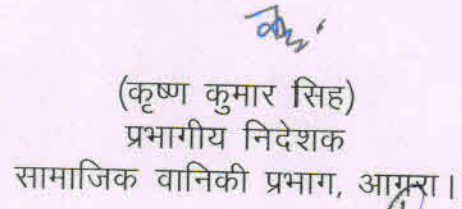 (कृष्ण कुमार सिंह)
प्रभागीय निदेशक
सामाजिक वानिकी प्रभाग, आगरा।